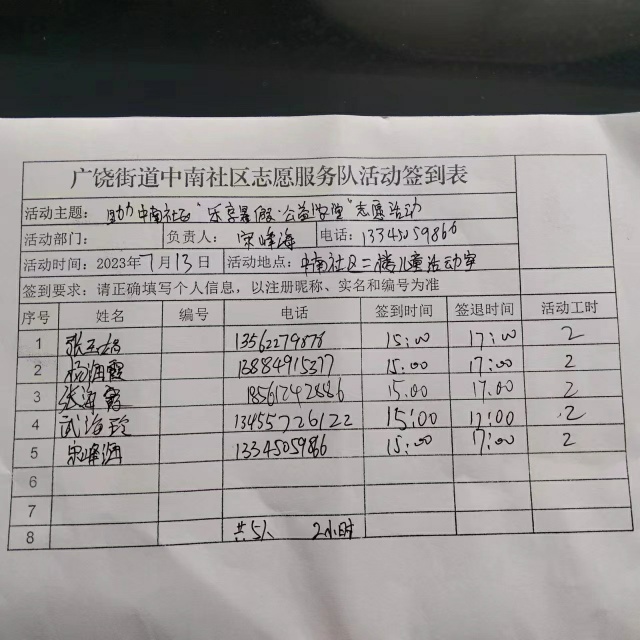 广饶街道中南社区志愿服务队活动签到表
活动主题： 助力中南社区"乐享暑假 公益课堂"志愿活动
活动部门： 负责人： 宋峰海 电话：13345059866
活动时间：2023年7月13日 活动地点：中南社区二楼儿童活动室
签到要求：请正确填写个人信息，以注册昵称、实名和编号为准
序号 姓名 编号 电话 签到时间 签退时间 活动工时
1 张玉娟 13562279878 15:00 17:00 2
2 杨海霞 13884915377 15:00 17:00 2
3 张海霞 18561242886 15:00 17:00 2
4 武海珍 13455726122 15:00 17:00 2
5 宋峰海 13345059866 15:00 17:00 2
6
7
8 共5人 2小时